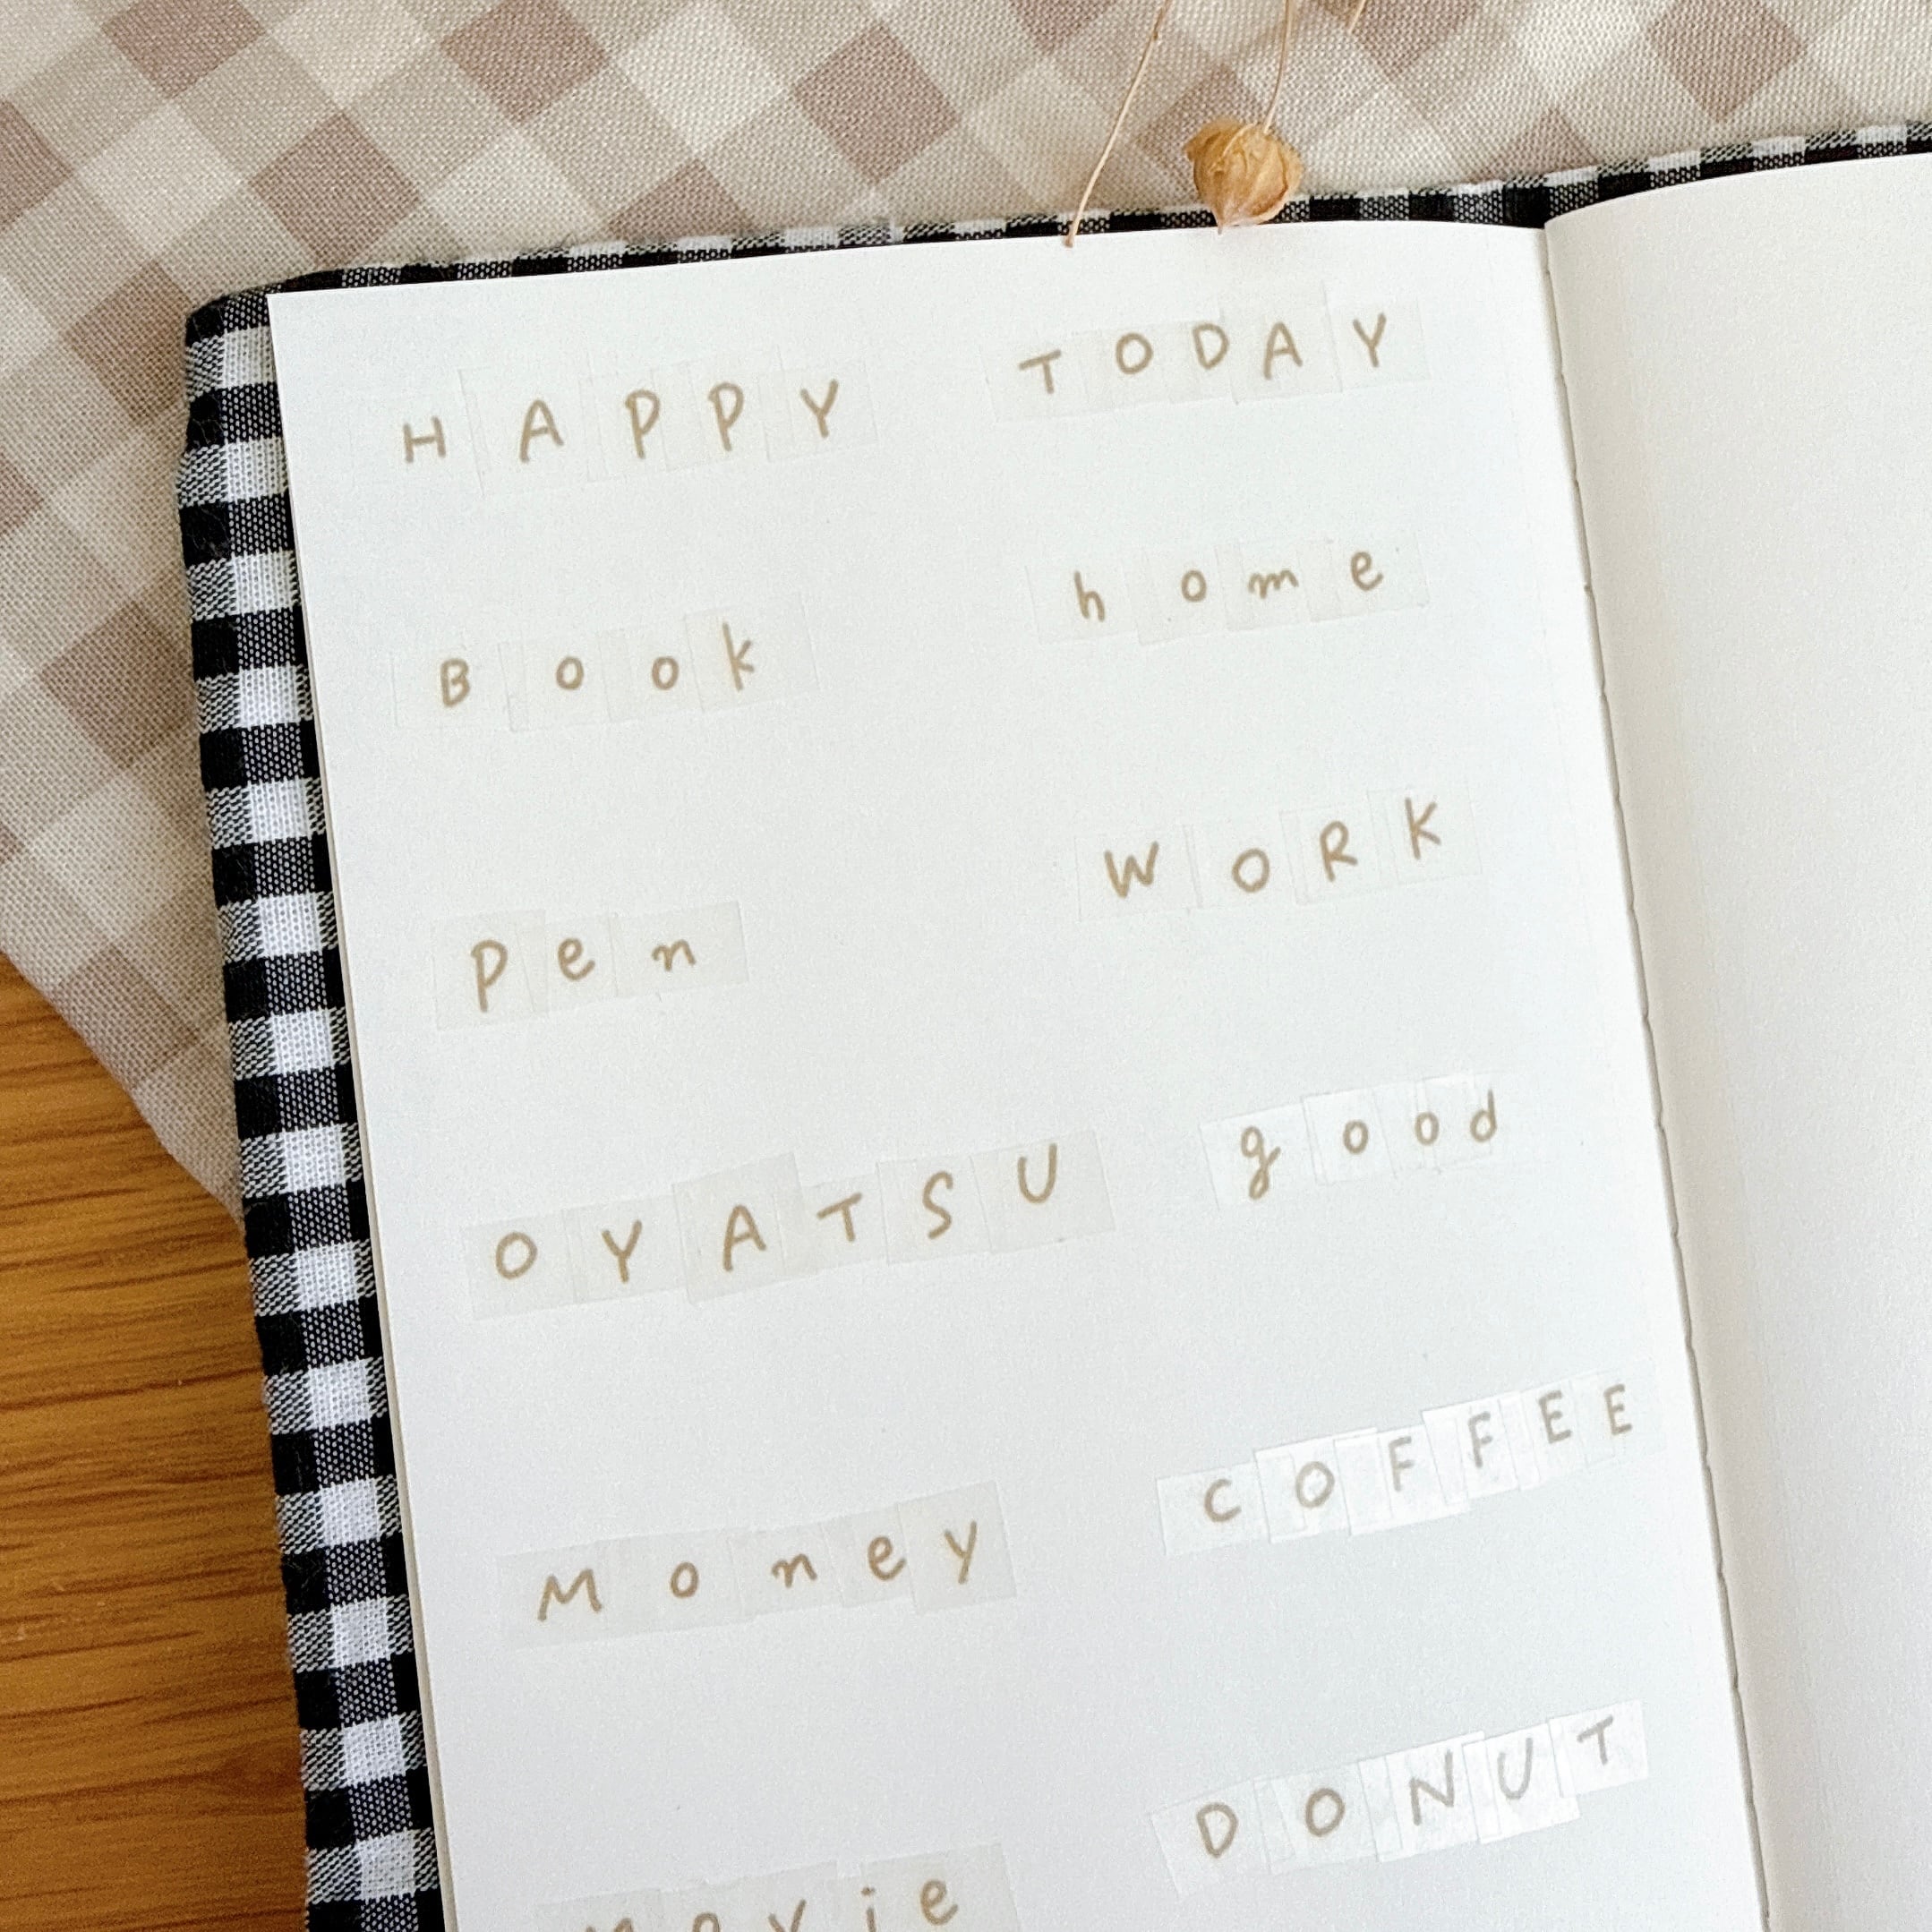 HAPPY TODAY
Book home
Pen WORK
OYATSU good
Money COFFEE
movie DONUT